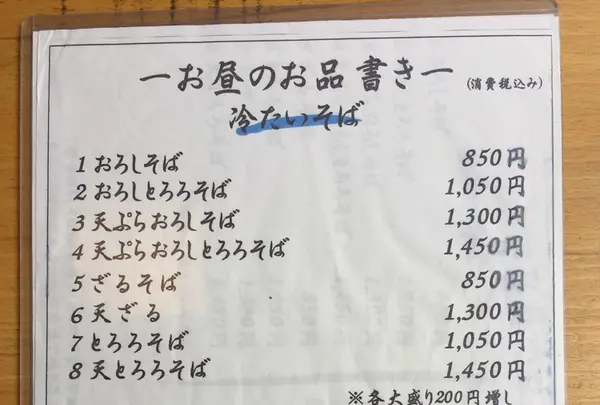 ーお昼のお品書きー (消費税込み)
冷たいそば
1 おろしそば 850円
2 おろしとろろそば 1,050円
3 天ぷらおろしそば 1,300円
4 天ぷらおろしとろろそば 1,450円
5 ざるそば 850円
6 天ざる 1,300円
7 とろろそば 1,050円
8 天とろろそば 1,450円
※各大盛り200円増し